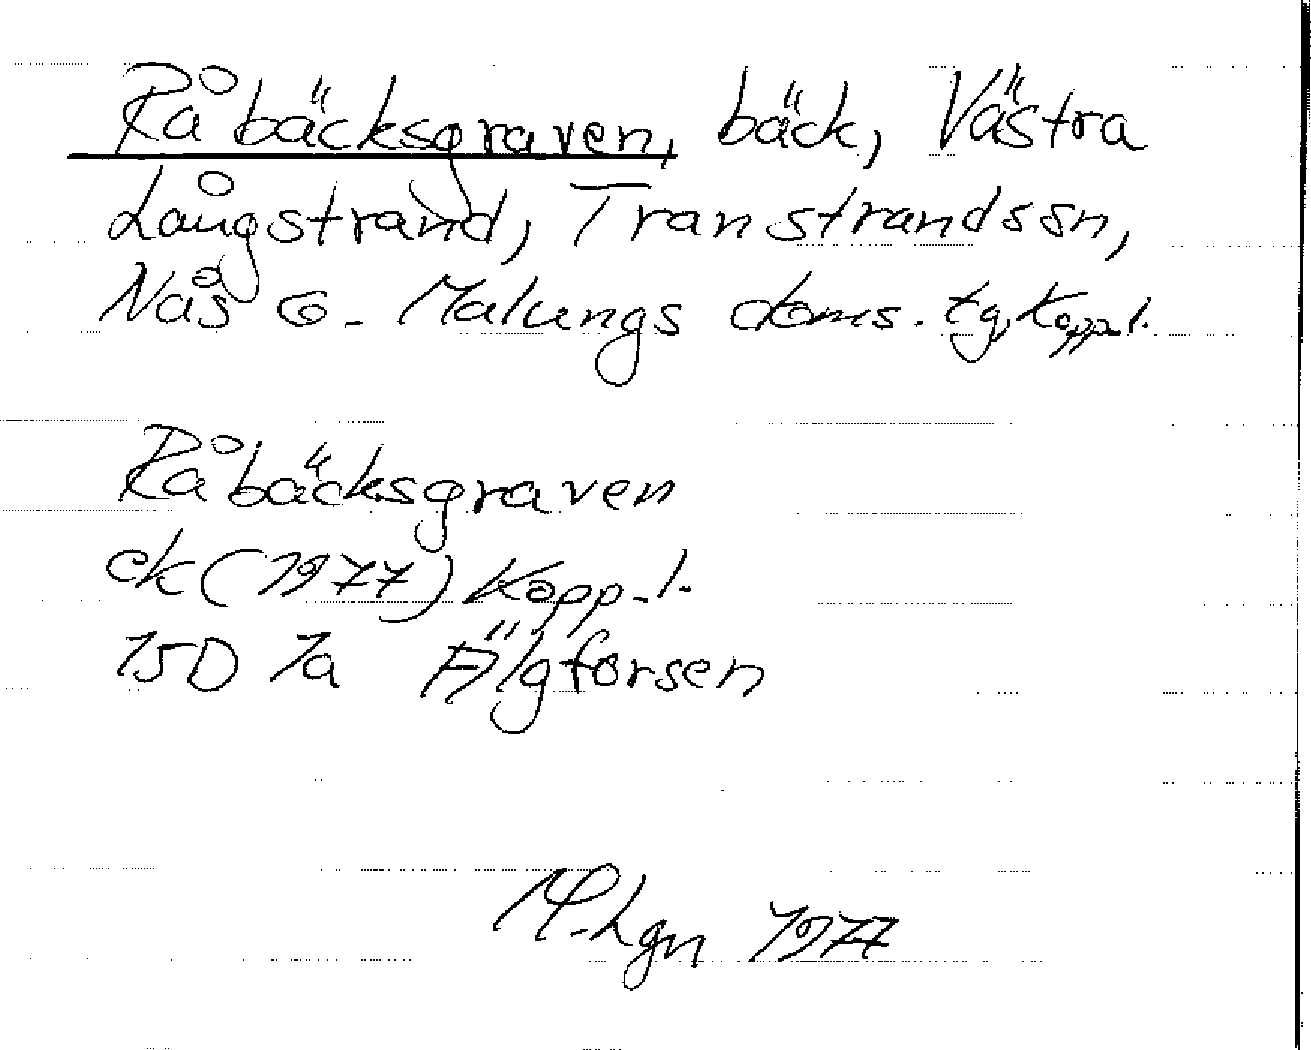 Råbäcksgraven, bäck, Västra
Långstrand, Transtrands sn,
Nås o. Malungs doms. tg, Koppl.
Råbäcksgraven
ek (1977) Kopp. l.
15D 1a Älgforsen
1977